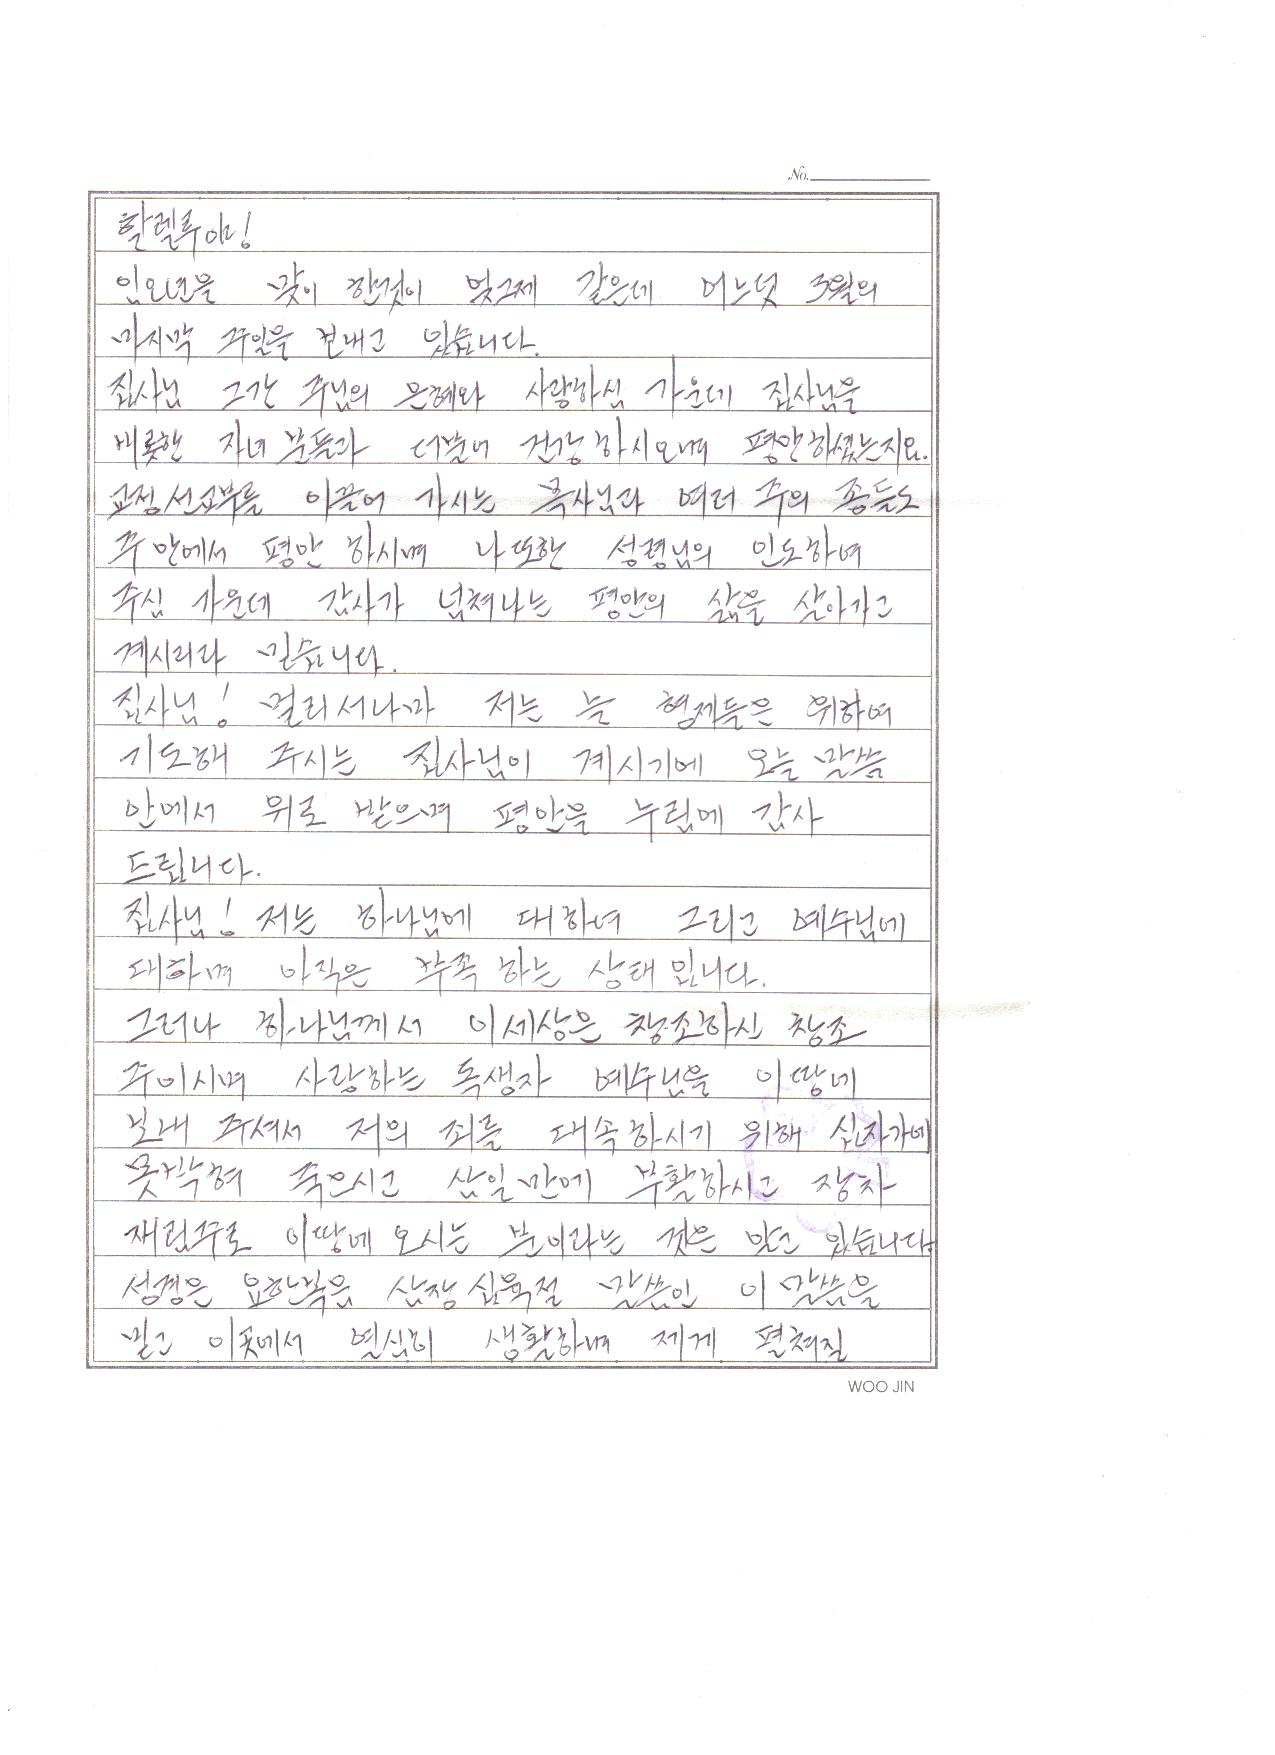 No.
할렐루야!
임오년을 맞이 한것이 엊그제 같은데 어느덧 3월의
마지막 주일을 보내고 있습니다.
집사님 그간 주님의 은혜와 사랑하심 가운데 집사님을
비롯한 자녀 분들과 더불어 건강 하시오며 평안하셨는지요.
교정선교부를 이끌어 가시는 목사님과 여러 주의 종들도
주 안에서 평안 하시며 나 또한 성령님의 인도하여
주심 가운데 감사가 넘쳐나는 평안의 삶을 살아가고
계시리라 믿습니다.
집사님! 멀리서나마 저는 늘 형제들은 위하여
기도해 주시는 집사님이 계시기에 오늘 말씀
안에서 위로 받으며 평안을 누림에 감사
드립니다.
집사님! 저는 하나님에 대하여 그리고 예수님에
대하며 아직은 부족 하는 상태 입니다.
그러나 하나님께서 이세상은 창조하신 창조
주이시며 사랑하는 독생자 예수님을 이 땅에
보내 주셔서 저의 죄를 대속하시기 위해 십자가에
못박혀 죽으시고 삼일만에 부활하시고 장차
재림주로 이땅에 오시는 분이라는 것은 알고 있습니다.
성경은 요한복음 삼장 십육절 말씀인 이 말씀을
믿고 이곳에서 열심히 생활하며 제게 펼쳐질
WOO JIN